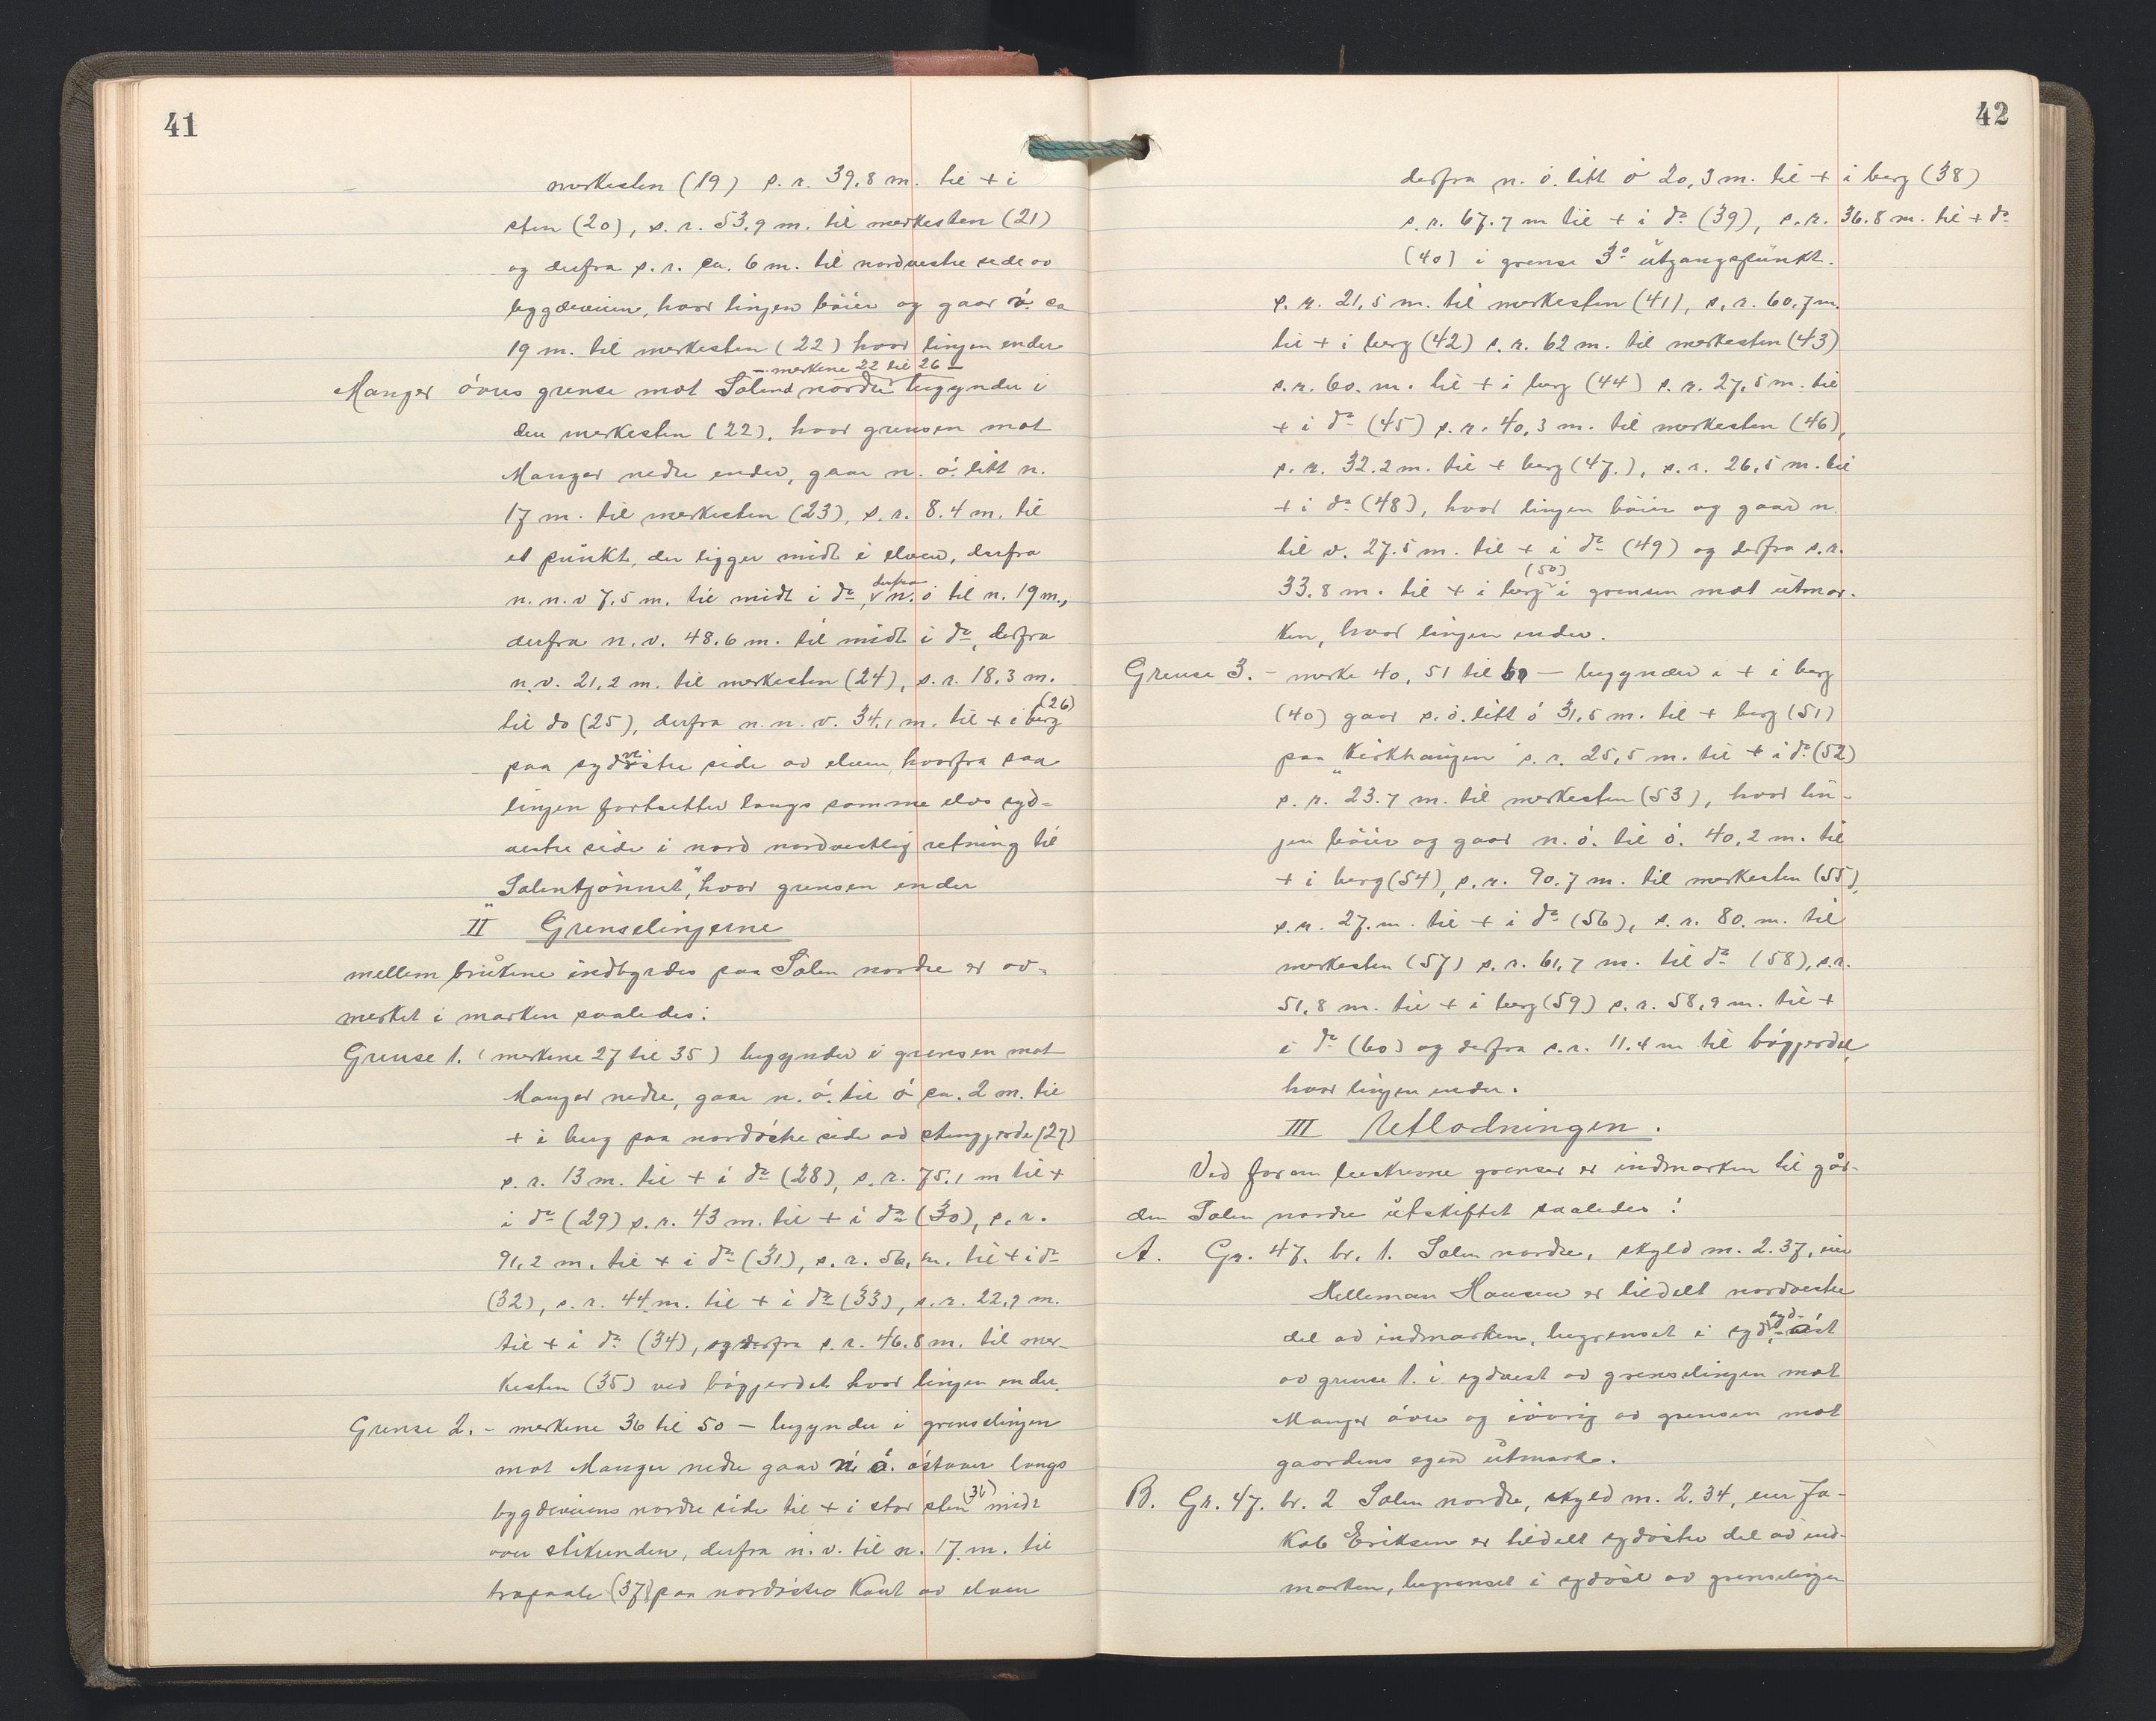 41
merkesten (19) s. r. 39,8 m. til + i
sten (20), s. r. 53,9 m. til merkesten (21)
og derfra s. r. ca. 6 m. til nordvestre side av
bygdeveien, hvor linjen böier og gaar ö. ca
19 m. til merkesten (22) hvor linjen ender
— merkene 22 til 26 —
Manger övres grense mot Solend nordre begynder i
den merkesten (22), hvor grensen mot
Manger nedre ender, gaar n. ö. litt n.
17 m. til merkesten (23), s. r. 8.4 m. til
et punkt, der ligger midt i elven, derfra
n. n. v 7,5 m. til midt i do, derfra n. ö til n. 19 m.,
derfra n. v. 48.6 m. til midt i do, derfra
n. v. 21,2 m. til merkesten (24), s. r. 18,3 m.
til do (25), derfra n. n. v. 34,1 m. til + i berg (26)
paa sydvestre side av elven, hvorfra saa
linjen fortsetter langs samme elvs syd-
vestre side i nord nordvestlig retning til
"Solentjönnet", hvor grensen ender
II Grenselinjerne
mellem brukene indbyrdes paa Solen nordre er av-
merket i marken saaledes:
Grense 1. (merkene 27 til 35) begynder i grensen mot
Manger nedre, gaar n. ö. til ö ca. 2 m. til
+ i berg paa nordöstre side av stengjerde (27)
s. r. 13 m. til + i do (28), s. r. 75,1 m til +
i do (29) s. r. 43 m. til + i do (30), s. r.
91,2 m. til + i do (31), s. r. 56, m. til + i do
(32), s. r. 44 m. til + i do (33), s. r. 22,9 m.
til + i do (34), og derfra s. r. 46.8 m. til mer-
kesten (35) ved bögjerdet hvor linjen ender.
Grense 2. - merkene 36 til 50 — begynder i grenselinjen
mot Manger nedre gaar n. ö. östover langs
bygdeveiens nordre side til + i stor sten (36) midt
over stikrenden, derfra n. v. til n. 17 m. til
træpaale (37) paa nordöstre kant av elven
42
derfra n. ö. litt ö 20,3 m. til + i berg (38)
s. r. 67.7 m til + i do (39), s. r. 36.8 m. til + do
(40) i grense 3s utgangspunkt.
s. r. 21,5 m. til merkesten (41), s. r. 60,7 m.
til + i berg (42) s. r. 62 m. til merkesten (43)
s. r. 60. m. til + i berg (44) s. r. 27,5 m. til
+ i do (45) s. r. 40,3 m. til merkesten (46),
s. r. 32.2 m. til + berg (47.), s. r. 26,5 m. til
+ i do (48), hvor linjen böier og gaar n.
til v. 27.5 m. til + i do (49) og derfra s. r.
33,8 m. til + i berg (50) i grensen mot utmar-
ken, hvor linjen ender.
Grense 3. - merke 40, 51 til 60 — begynder i + i berg
(40) gaar s. ö. litt ö 31,5 m. til + berg (51)
paa "Kirkhaugen" s. r. 25,5 m. til + i do (52)
s. r. 23.7 m. til merkesten (53), hvor lin-
jen böier og gaar n. ö. til ö. 40,2 m. til
+ i berg (54), s. r. 90.7 m. til merkesten (55),
s. r. 27. m. til + i do (56), s. r. 80. m. til
merkesten (57) s. r. 61,7 m. til do (58), s. r.
51,8 m. til + i berg (59) s. r. 58,9 m. til +
i do (60) og derfra s. r. 11.4 m til bögjerdet,
hvor linjen ender.
III Utlodningen.
Ved foran beskrevne grenser er indmarken til går-
den Solen nordre utskiftet saaledes:
A. Gr. 47. br. 1. Solen nordre, skyld m. 2.37, eier
Helleman Hansen er tildelt nordvestre
del av indmarken, begrenset i syd, syd-öst
av grense 1. i sydvest av grenselinjen mot
Manger övre og iövrig av grensen mot
gaardens egen utmark.
B. Gr. 47. br. 2 Solen nordre, skyld m. 2.34, eier Ja-
kob Eriksen er tildelt sydöstre del av ind-
marken, begrenset i sydöst av grenselinjen